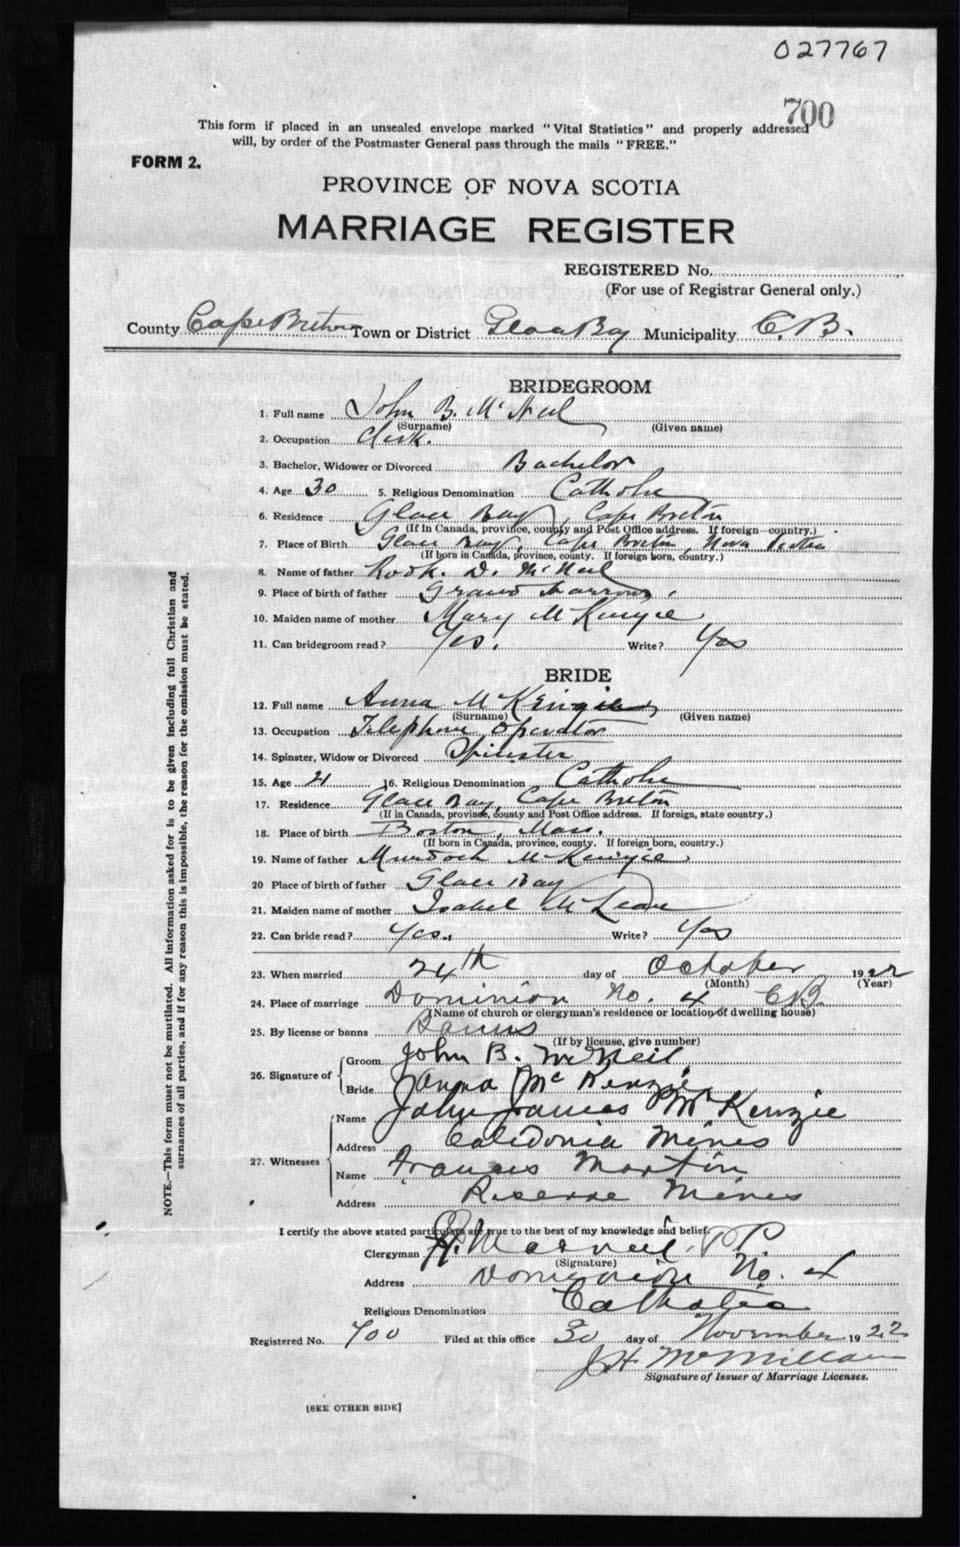 027767
700
This form if placed in an unsealed envelope marked "Vital Statistics" and properly addressed
will, by order of the Postmaster General pass through the mails "FREE."
FORM 2.
PROVINCE OF NOVA SCOTIA
MARRIAGE REGISTER
REGISTERED No.
(For use of Registrar General only.)
County Cape Breton Town or District Glace Bay Municipality C.B.
BRIDEGROOM
1. Full name John B. McNeil
(Surname) (Given name)
2. Occupation Clerk.
3. Bachelor, Widower or Divorced Bachelor
4. Age 30 5. Religious Denomination Catholic
6. Residence Glace Bay, Cape Breton
(If in Canada, province, county and Post Office address. If foreign—country.)
7. Place of Birth Glace Bay, Cape Breton, Nova Scotia
(If born in Canada, province, county. If foreign born, country.)
8. Name of father D. McNeil
9. Place of birth of father Grand Narrows.
10. Maiden name of mother Mary McKenzie
11. Can bridegroom read? Yes. Write? Yes
BRIDE
12. Full name Anna McKenzie
(Surname) (Given name)
13. Occupation Telephone Operator
14. Spinster, Widow or Divorced Spinster
15. Age 21 16. Religious Denomination Catholic
17. Residence Glace Bay, Cape Breton
(If in Canada, province, county and Post Office address. If foreign, state country.)
18. Place of birth Boston, Mass.
(If born in Canada, province, county. If foreign born, country.)
19. Name of father Murdoch McKenzie
20 Place of birth of father Glace Bay
21. Maiden name of mother Isabel McLean
22. Can bride read? Yes. Write? Yes
23. When married 24th day of October 1922
(Month) (Year)
24. Place of marriage Dominion No. 4 C.B.
(Name of church or clergyman's residence or location of dwelling house)
25. By license or banns Banns
(If by license, give number)
26. Signature of Groom John B. McNeil
Bride Anna McKenzie
27. Witnesses Name John James McKenzie
Address Caledonia Mines
Name Frances Martin
Address Reserve Mines
I certify the above stated particulars are true to the best of my knowledge and belief.
Clergyman MacNeil P.P.
(Signature)
Address Dominion No. 4
Religious Denomination Catholic
Registered No. 700 Filed at this office 30 day of November 1922
J H McMillan
Signature of Issuer of Marriage Licenses.
[SEE OTHER SIDE]
NOTE.—This form must not be mutilated. All information asked for is to be given including full Christian and
surnames of all parties, and if for any reason this is impossible, the reason for the omission must be stated.